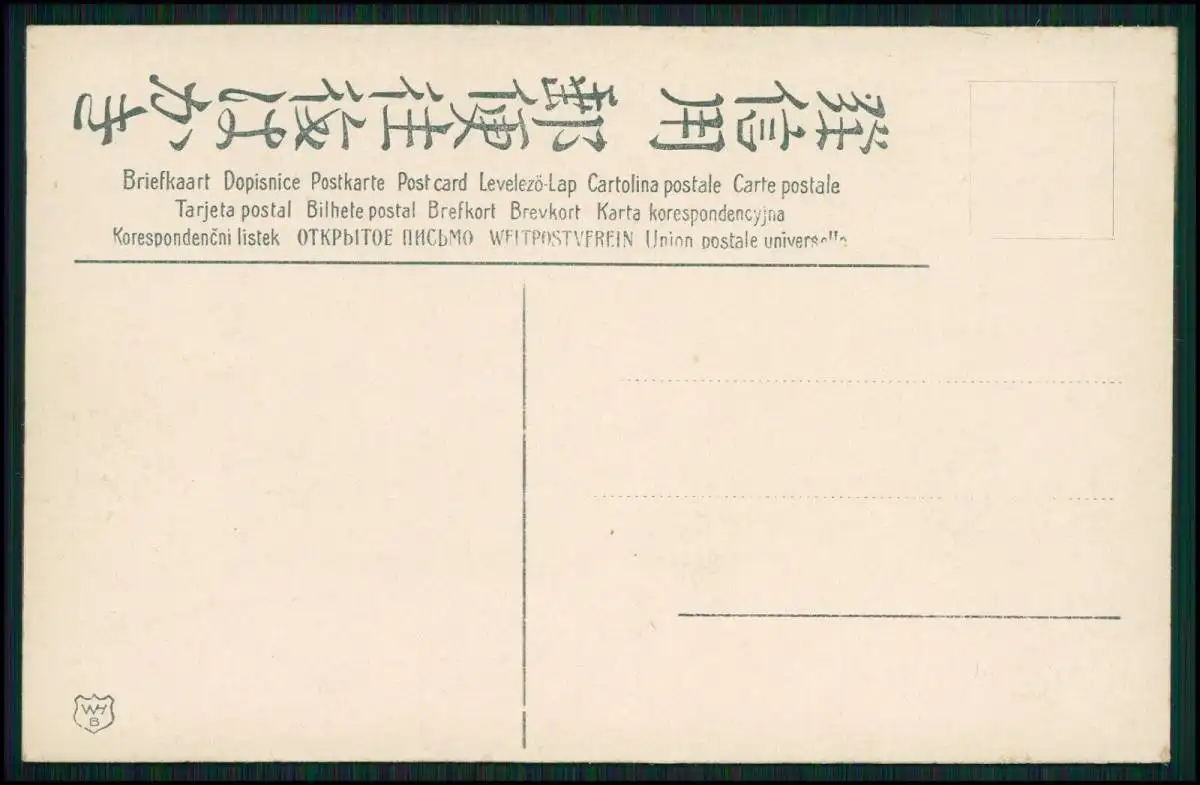 發信用 郵便往復はかき
Briefkaart Dopisnice Postkarte Post card Levelező-Lap Cartolina postale Carte postale
Tarjeta postal Bilhete postal Brefkort Brevkort Karta korespondencyjna
Korespondenčni listek ОТКРЫТОЕ ПИСЬМО WELTPOSTVEREIN Union postale universelle
WH
B